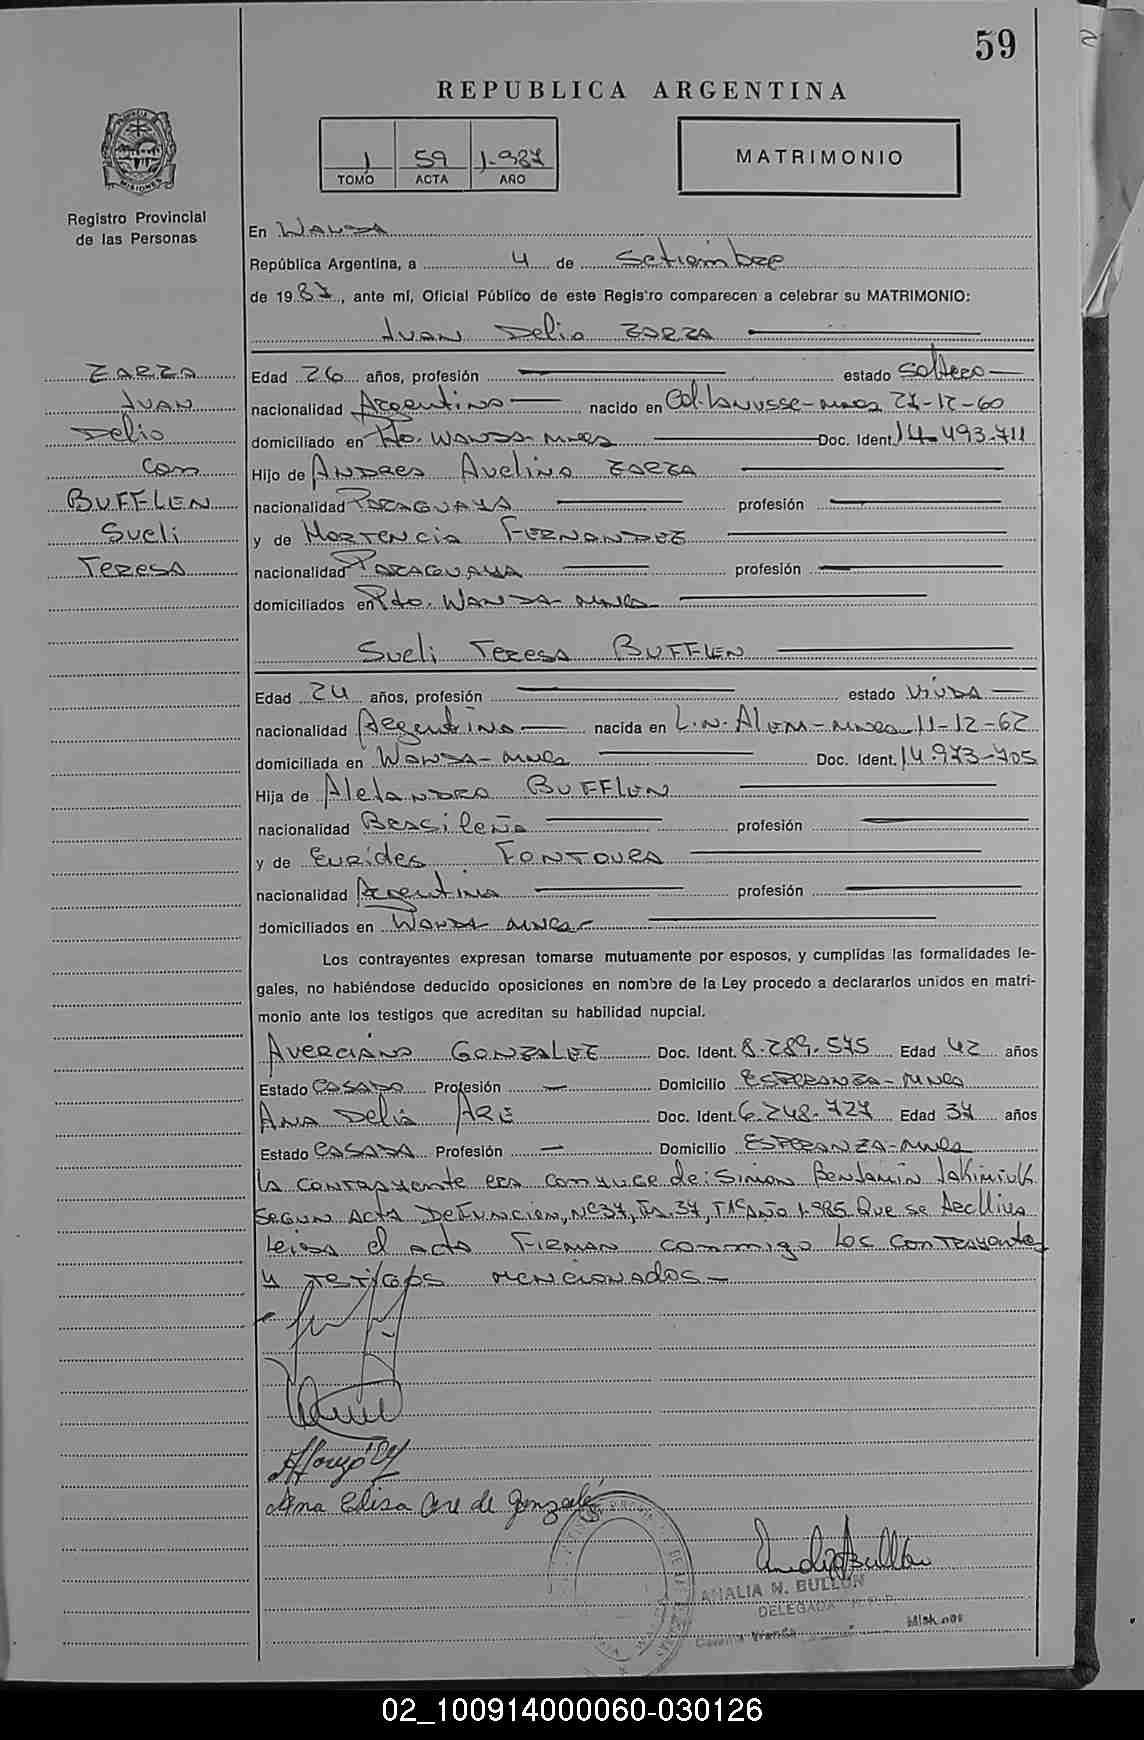 59
REPUBLICA ARGENTINA
1 59 1.987
TOMO ACTA AÑO
MATRIMONIO
PROVINCIA DE MISIONES
Registro Provincial
de las Personas
En WANDA
República Argentina, a 4 de Setiembre
de 1987, ante mí, Oficial Público de este Registro comparecen a celebrar su MATRIMONIO:
JUAN Delio ZARZA
ZARZA
JUAN
Delio
Con
BUFFLEN
Sueli
TERESA
Edad 26 años, profesión estado soltero
nacionalidad Argentino nacido en Col. Lanusse-Mnes 27-12-60
domiciliado en Pto. WANDA-Mnes Doc. Ident. 14.493.711
Hijo de ANDRES Avelino ZARZA
nacionalidad PARAGUAYA profesión
y de HORTENCIA FERNANDEZ
nacionalidad PARAGUAYA profesión
domiciliados en Pto. WANDA-Mnes
Sueli TERESA BUFFLEN
Edad 24 años, profesión estado VIUDA
nacionalidad Argentina nacida en L.N. Alem-Mnes 11-12-62
domiciliada en WANDA-Mnes Doc. Ident. 14.973-705
Hija de AleJANDRO BUFFLEN
nacionalidad BRASileña profesión
y de Eurides FONTOURA
nacionalidad Argentina profesión
domiciliados en WANDA-Mnes
Los contrayentes expresan tomarse mutuamente por esposos, y cumplidas las formalidades le-
gales, no habiéndose deducido oposiciones en nombre de la Ley procedo a declararlos unidos en matri-
monio ante los testigos que acreditan su habilidad nupcial.
AVERCIANO GONZALEZ Doc. Ident. 8.289.575 Edad 42 años
Estado CASADO Profesión — Domicilio ESPERANZA-Mnes
ANA Delia ARE Doc. Ident. 6.248.727 Edad 37 años
Estado CASADA Profesión — Domicilio ESPERANZA-Mnes
La contrayente era conyuge de: Simon Benjamin
Segun Acta Defuncion, Nº37, Fs.37, Tº Año 1.985 Que se Archiva
Leida el acta FIRMAN conmigo los contrayentes
y testigos mencionados-
Ana Elisa Are de Gonzalez
AMALIA N. BULLON
DELEGADA
Colonia Wanda Misiones
02_100914000060-030126